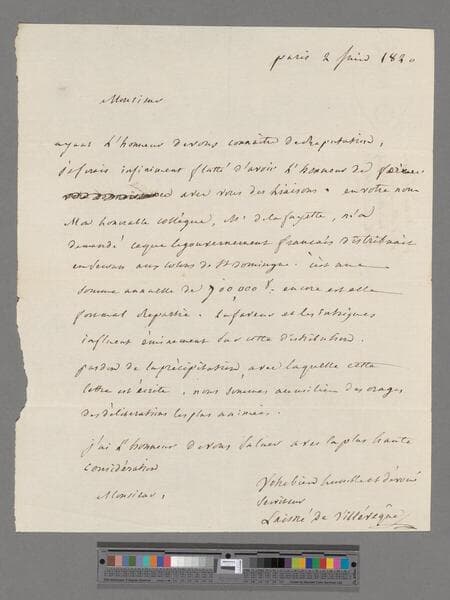 paris 2 juin 1820
Monsieur
ayant l'honneur de vous connaitre de Reputation,
je serais infiniment flatté d'avoir l'honneur de
avec vous des liaisons. en votre nom
Mon honorable collègue, Mr de lafayette, m'a
demandé ce que le gouvernement français distribuait
en secours aux colons de St Domingue. c'est une
somme annuelle de 700 000 f. encore est elle
fort mal Repartie. la faveur et les intrigues
influent éminement sur cette distribution.
pardon de la précipitation avec laquelle cette
lettre est écrite, nous sommes au milieu des orages
des deliberations les plus animées.
j'ai l'honneur de vous saluer avec la plus haute
Considération
Monsieur,
Votre bien humble et dévoué
Serviteur
Laisné de Villévêque